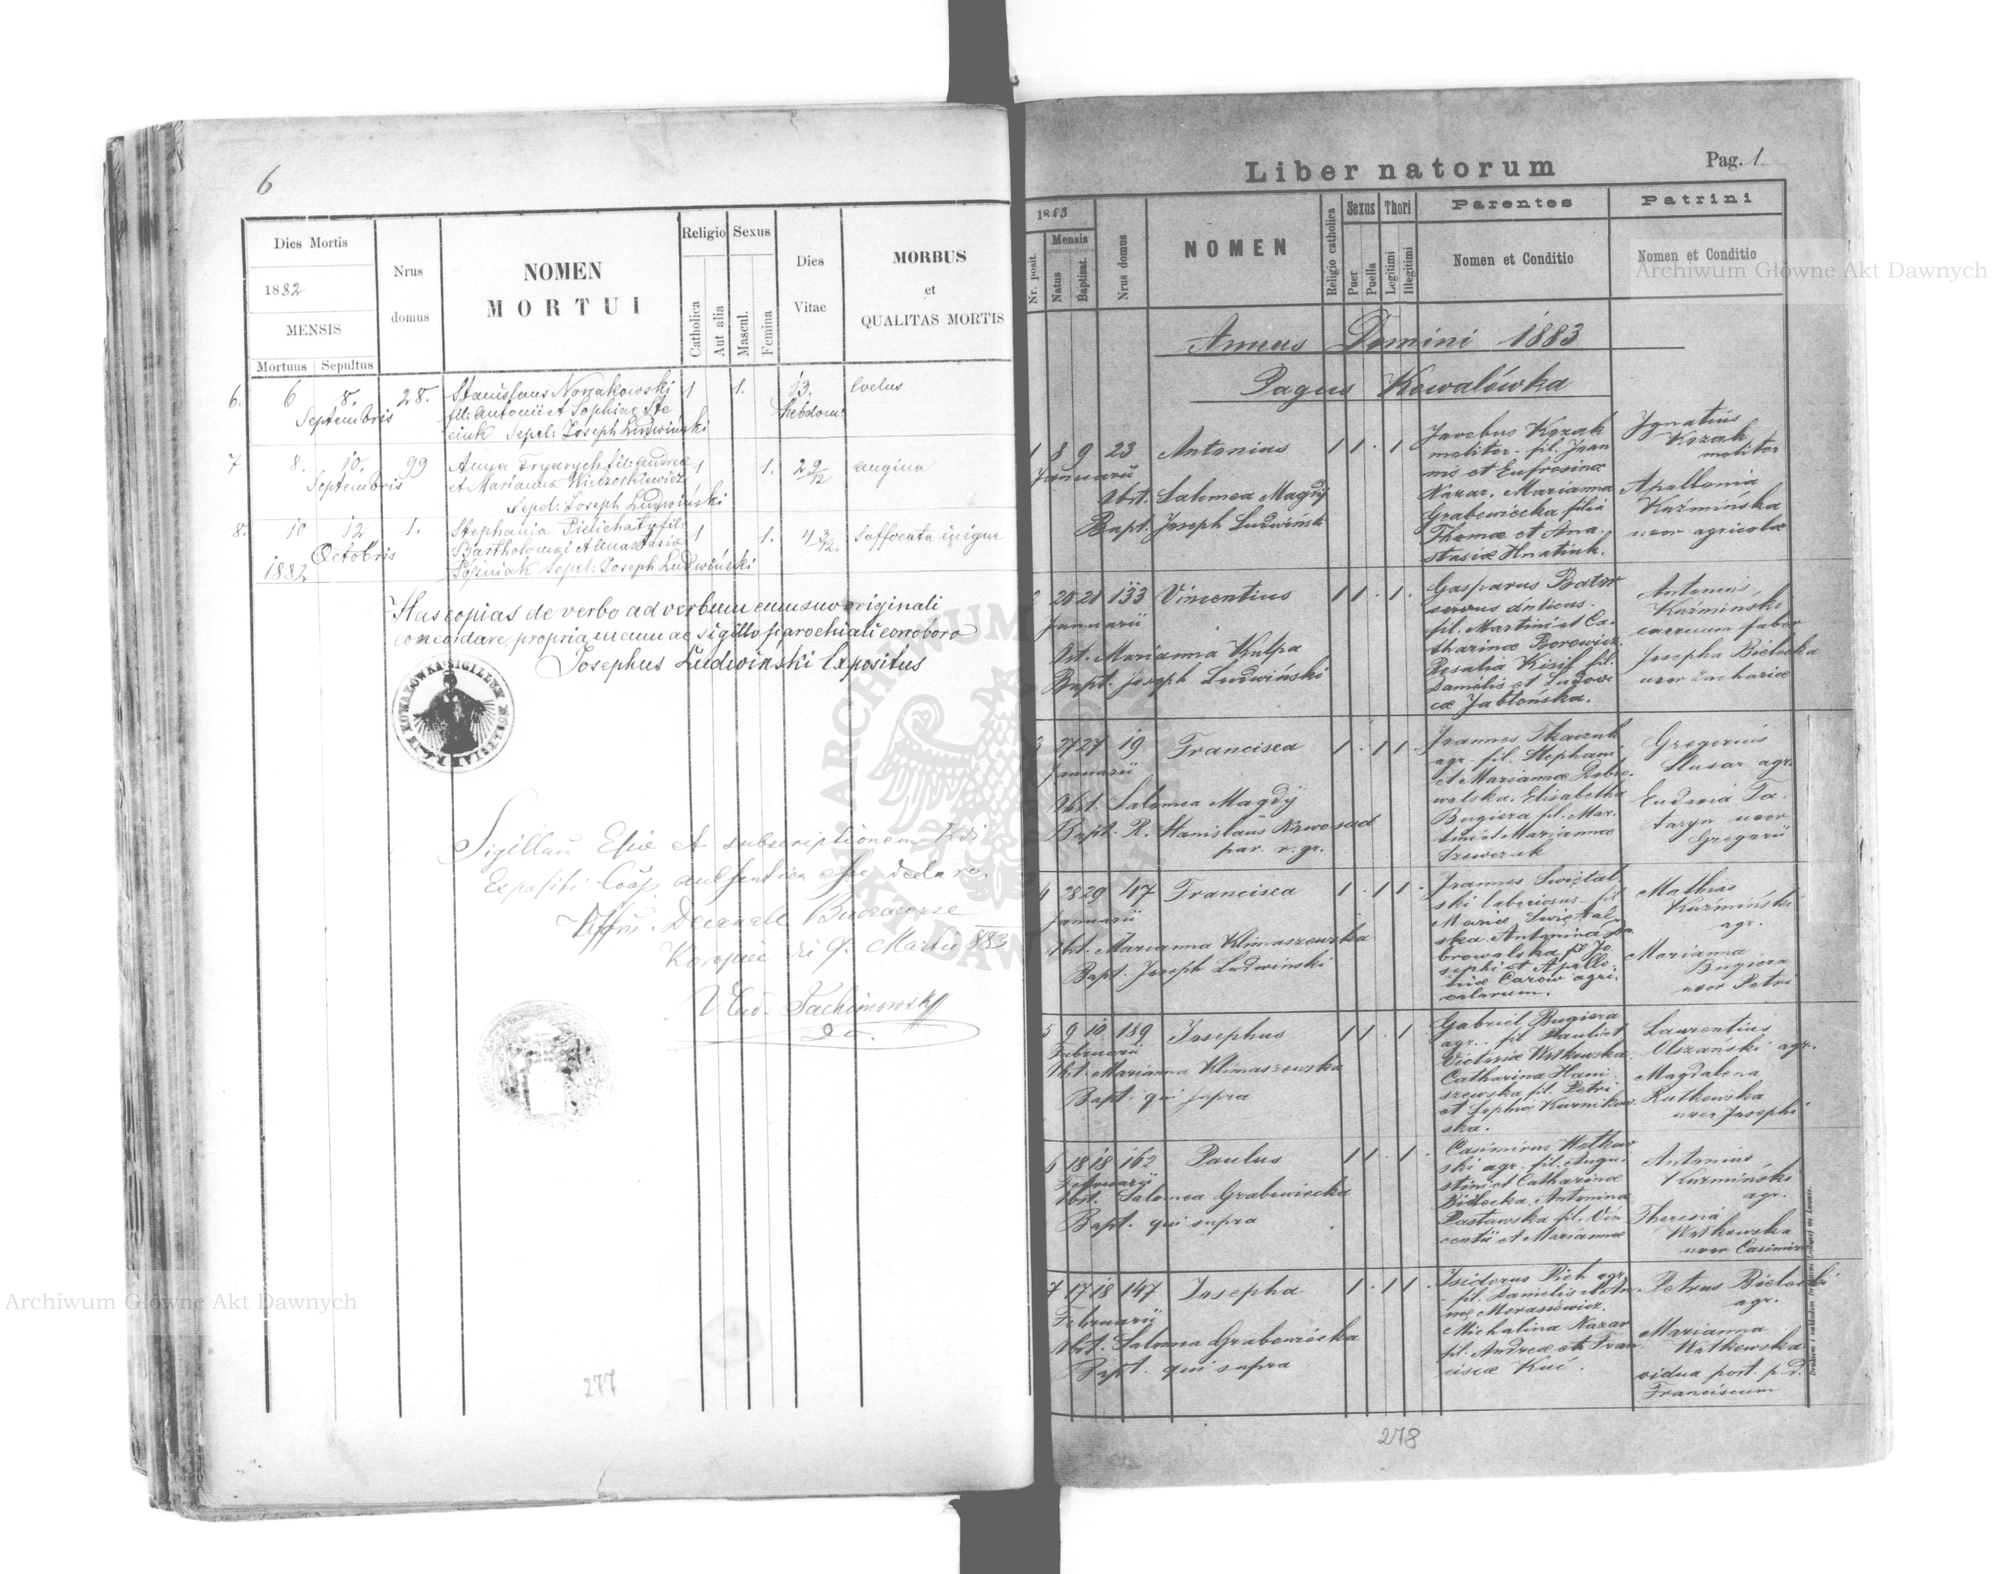 6
Dies Mortis
1882
MENSIS
Mortuus Sepultus
Nrus domus
NOMEN
MORTUI
Religio Sexus
Catholica
Aut alia
Mascul.
Femina
Dies
Vitae
MORBUS
et
QUALITAS MORTIS
6. 6 8. 28. Stanislaus Nowakowski 1 1. 13.
Septembris fil: Antonii et Sophiae Ste Hebdom:
Sepel: Joseph Ludwiński
7 8. 10. 99 Anna fil: Andreae 1 1. 2 9/12 angina
Septembris et Marianna Wieczorkiewicz
Sepel: Joseph Ludwiński
8. 10 12 1. Stephania Pielichaty fil: 1 1. 4 3/12 Suffocata
Octobris Bartholomaei et Anastasia
1882 Sepel: Joseph Ludwiński
Has copias de verbo ad verbum cum suo originali
concordare, propria manu ac sigillo parochiali corroboro
Josephus Ludwinski Expositus
KOWALÓWKA SIGILLUM
Sigillum Eccae et subscriptionem
Expositi Coop. authentica esse declaro,
Koropiec die 9. Martii 883
277
Liber natorum
Pag. 1
1883
Nr. posit.
Mensis
Natus
Baptisat.
Nrus domus
NOMEN
Religio catholica
Sexus
Puer
Puella
Thori
Legitimi
Illegitimi
Parentes
Nomen et Conditio
Patrini
Nomen et Conditio
Annus Domini 1883
Pagus Kowalówka
1 8 9 23 Antonius 1 1 . 1 .
Januarii
Obst. Salomea Magdij
Bapt. Joseph Ludwiński
Jacobus Kozak
molitor fil. Joan
nis et Eufrosinae
Nazar. Marianna
Grabowiecka filia
Thomae et Ana
stasiae Hnatiuk.
Ignatius
Kozak
molitor
Apollonia
Kuźmińska
uxor agricolae
2 20 21 133 Vincentius 1 1 . 1 .
Januarii
Obt. Marianna Kulpa
Bapt. Joseph Ludwiński
Gasparus Bator
servus
fil. Martini et Ca
tharinae Borowicz
Rosalia Kisil fil.
Danielis et Ludovi
cae Jabłońska.
Antonius
Kuźmiński
carruum faber
Josepha Bielecka
uxor Zachariae
3 27 27 19 Francisca 1 . 1 1 .
Januarii
Obst. Salomea Magdij
Bapt. R. Stanislaus Krwosad
par. r. gr.
Joannes Tkaczuk
agr. fil. Stephani
et Mariannae Dobro
wolska. Elisabetha
Bugiera fil. Mar
tini et Mariannae
Szewczuk
Gregorius
Slusar agr.
Eudoxia Ta
taryn uxor
Gregorii
4 28 29 47 Francisca 1 . 1 1 .
Januarii
Obt. Marianna Klimaszewska
Bapt. Joseph Ludwiński
Joannes Swiętal
ski laboriosus fil
Mariae Swiętal
ska. Antonina Da
browolska fil Jo
sephi et Apollo
niae Carow agri
colarum.
Mathias
Kuźmiński
agr.
Marianna
Bugiera
uxor Petri
5 9 10 189 Josephus 1 1 . 1 .
Februarii
Obt. Marianna Klimaszewska
Bapt. qui supra
Gabriel Bugiera
agr. fil Pauli et
Victoriae Witkowska.
Catharina Hani
szewska fil. Petri
et Sophiae Kurnikow
ska.
Laurentius
Olszański agr.
Magdalena
Rutkowska
uxor Josephi
6 18 18 162 Paulus 1 1 . 1 .
Februarii
Obt. Salomea Grabowiecka
Bapt. qui supra
Casimirus Witkow
ski agr. fil. Augu
stini et Catharinae
Bielecka. Antonina
Pastawska fil. Vin
centii et Mariannae
Antonius
Kuźmiński
agr.
Theresia
Witkowska
uxor Casimiri
7 17 18 147 Josepha 1 . 1 1 .
Februarii
Obt. Salomea Grabowiecka
Bapt. qui supra
Isidorus Pich agr.
fil. Danielis et An
nae Morasiewicz.
Michalina Nazar
fil. Andreae et Fran
ciscae Kuć.
Petrus Bielecki
agr.
Marianna
Witkowska
vidua post p. d.
Franciscum
278
Archiwum Główne Akt Dawnych
Archiwum Główne Akt Dawnych